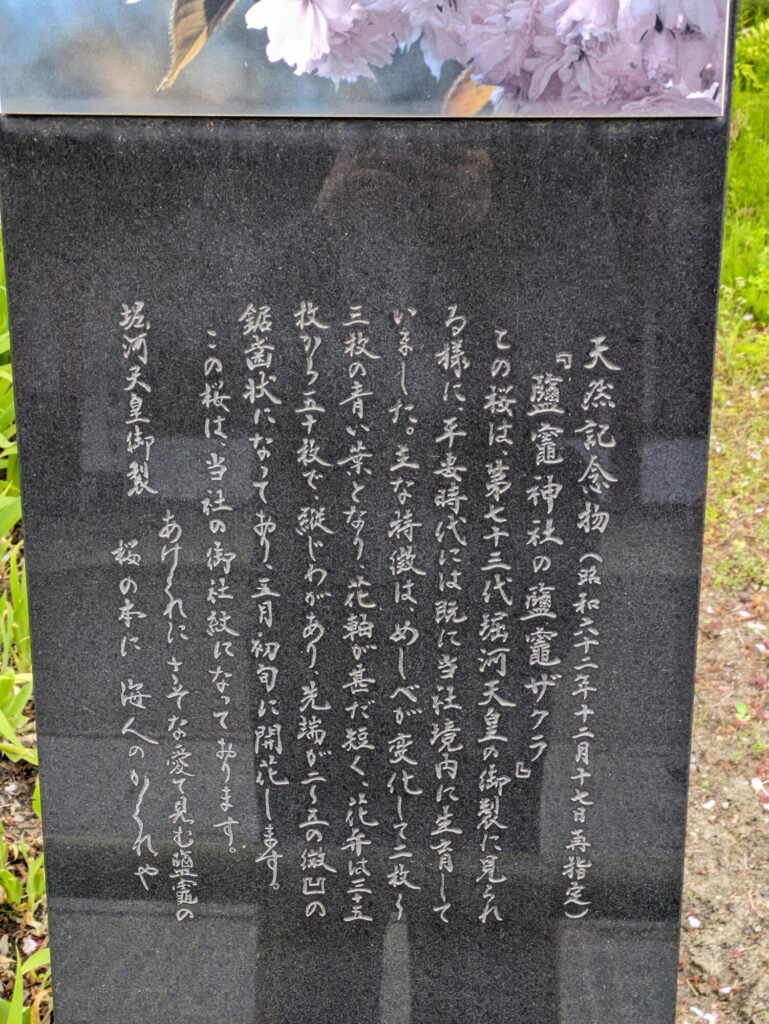 天然記念物（昭和六十二年十二月十七日再指定）
『鹽竈神社の鹽竈ザクラ』
この桜は、第七十三代堀河天皇の御製に見られ
る様に、平安時代には既に当社境内に生育して
いました。主な特徴は、めしべが変化して二枚〜
三枚の青い葉となり、花軸が甚だ短く、花弁は三十五
枚から五十枚で、縦じわがあり、先端が二〜五の微凹の
鋸歯状になっており、五月初旬に開花します。
この桜は、当社の御社紋になっております。
堀河天皇御製
あけくれに さぞな愛で見む鹽竈の
桜の本に 海人のかくれや